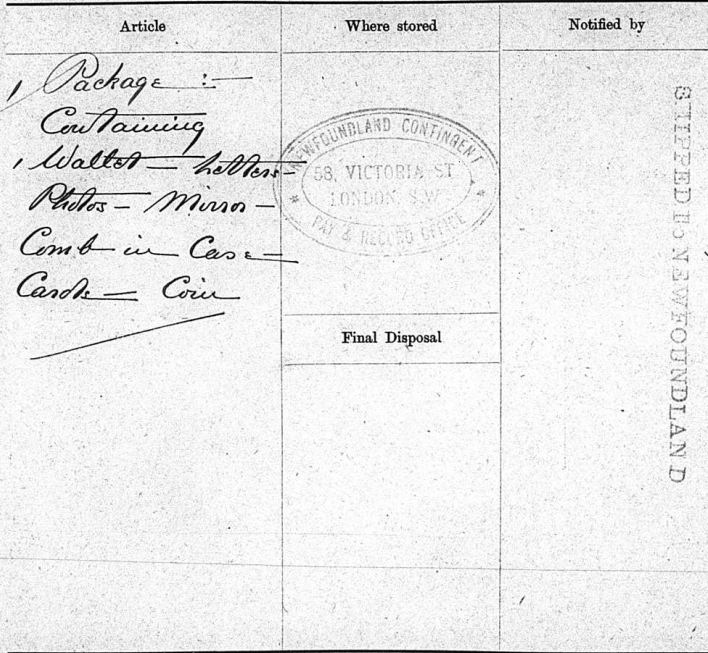 Article
Where stored
Notified by
1 Package :—
Containing
1 Wallet — Letters —
Photos — Mirror —
Comb in Case —
Cards — Coin
NEWFOUNDLAND CONTINGENT
58, VICTORIA ST
LONDON, S.W.
PAY & RECORD OFFICE
Final Disposal
SHIPPED To NEWFOUNDLAND